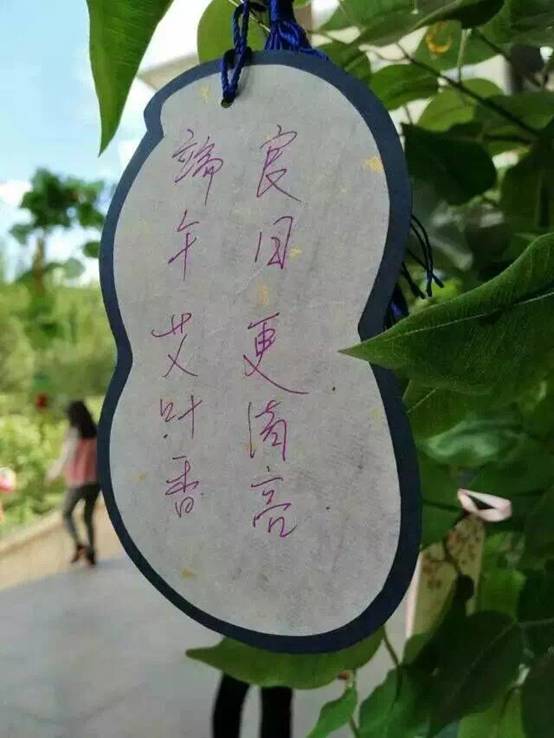 良月更清亮
端午艾叶香